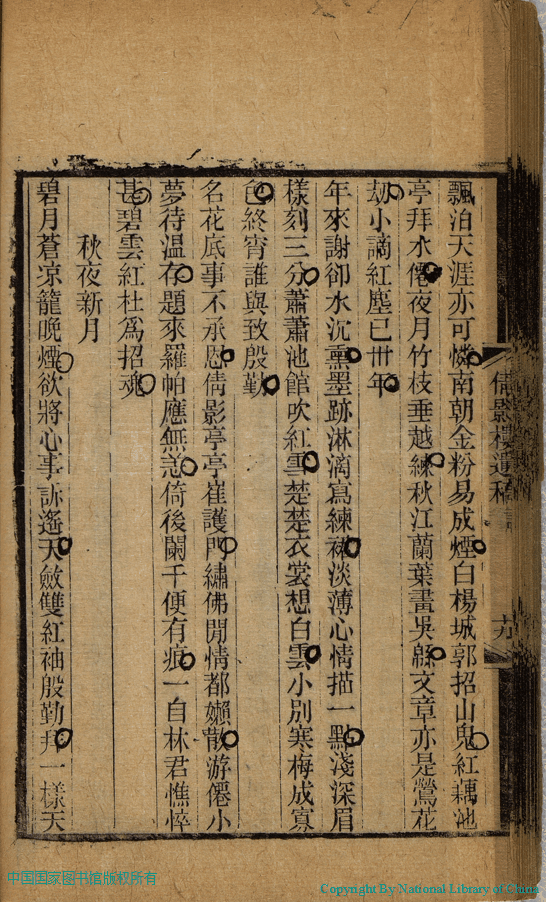 飄泊天涯亦可憐南朝金粉易成煙白楊城郭招山鬼紅藕池
亭拜水僊夜月竹枝垂越練秋江蘭葉畫吳緜文章亦是鶯花
劫小謫紅塵已卅年
年來謝卻水沉熏墨跡淋漓寫練裙淡薄心情描一點淺深眉
樣刻三分蕭蕭池館吹紅雪楚楚衣裳想白雲小別寒梅成寡
色終宵誰與致殷勤
名花底事不承恩倩影亭亭崔護門繡佛閒情都嬾散游僊小
夢待温存題來羅帕應無恙倚後闌干便有痕一自林君憔悴
甚碧雲紅杜爲招魂
秋夜新月
碧月蒼凉籠晚煙欲將心事訴遙天斂雙紅袖殷勤拜一樣天
倩影樓遺稿
十九
中国国家图书馆版权所有
Copyright By National Library of China